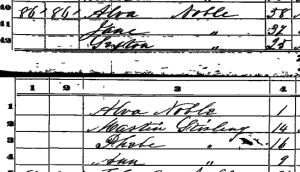 40 86 86 Alva Noble 58
41 Jane " 37
42 "
1 2 3 4
1 Alva Noble 1
2 Martin Stirling 14
3 Phebe " 16
4 Ann " 9